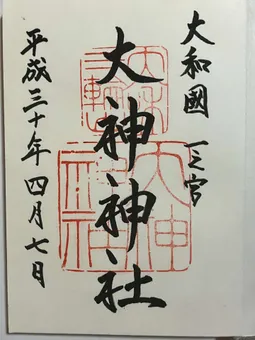 大和國 一之宮
大神神社
平成三十年四月七日